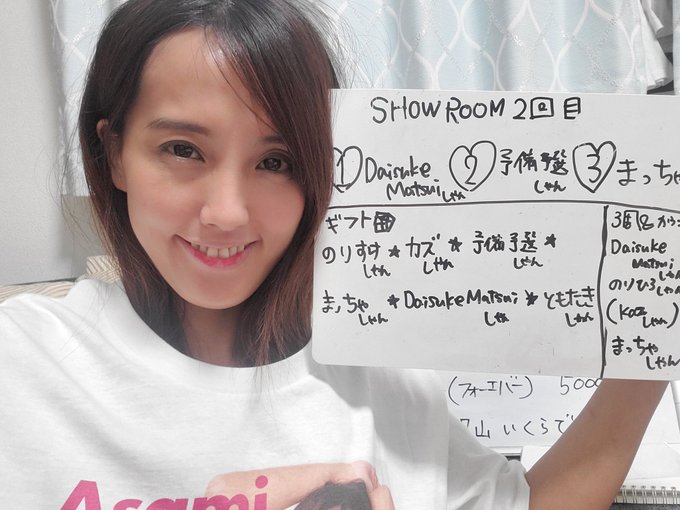 SHOWROOM 2回目
① Daisuke Matsuiしゃん ② 予備予選しゃん ③ まっちゃ
ギフト
のりすけしゃん * カズしゃん * 予備予選しゃん *
まっちゃしゃん * DaisukeMatsuiしゃん * ともたきしゃん
3周名カウン
Daisuke
Matsuiしゃん
のりひろしゃん
(Kazしゃん)
まっちゃしゃん
(フォーエバー) 5000
山 いくらで
Asami